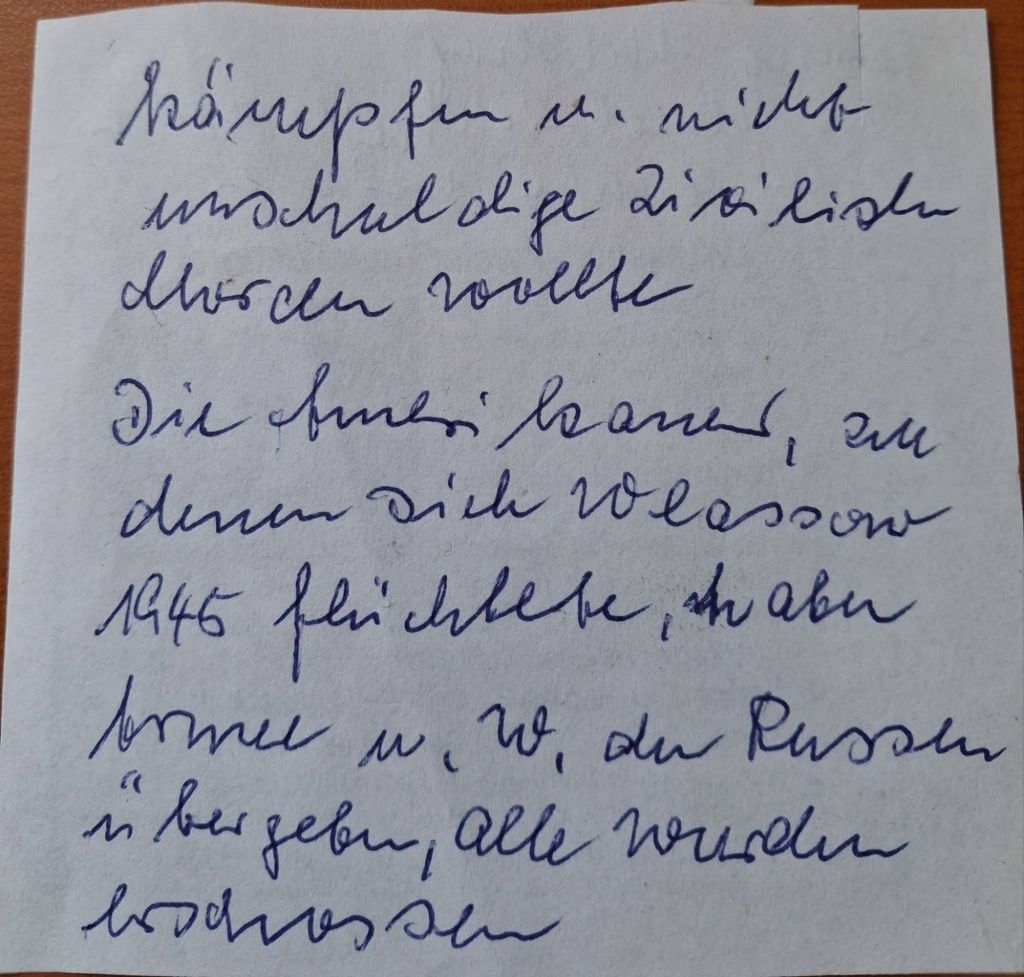 kämpfen u. nicht
unschuldige Zivilisten
Morden wollte
Die Amerikaner, zu
denen sich Wlassow
1945 flüchtete, haben
Armee u. W. den Russen
übergeben, Alle wurden
erschossen